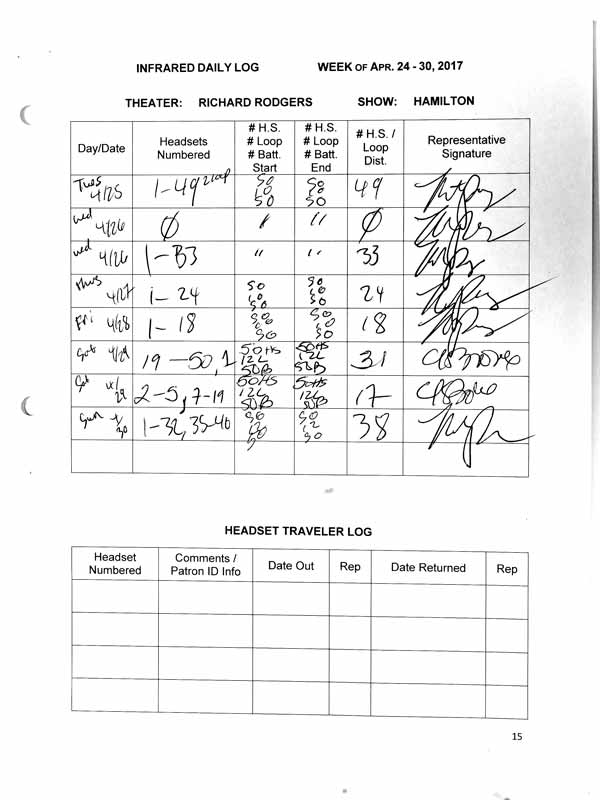 INFRARED DAILY LOG WEEK OF APR. 24 - 30, 2017
THEATER: RICHARD RODGERS SHOW: HAMILTON
Day/Date Headsets Numbered # H.S. # Loop # Batt. Start # H.S. # Loop # Batt. End # H.S. / Loop Dist. Representative Signature
Tues 4/25 1-49 2 loop 50 10 50 50 10 50 49
wed 4/26 Ø " " Ø
wed 4/26 1-33 " " 33
Thurs 4/27 1-24 50 10 50 50 10 50 24
Fri 4/28 1-18 50 10 50 50 10 50 18
Sat 4/29 19-50, 1 50HS 12L 50B 50HS 12L 50B 31
Sat 4/29 2-5, 7-19 50HS 12L 50B 50HS 12L 50B 17
Sun 4/30 1-32, 35-40 50 12 50 50 12 50 38
HEADSET TRAVELER LOG
Headset Numbered Comments / Patron ID Info Date Out Rep Date Returned Rep
15